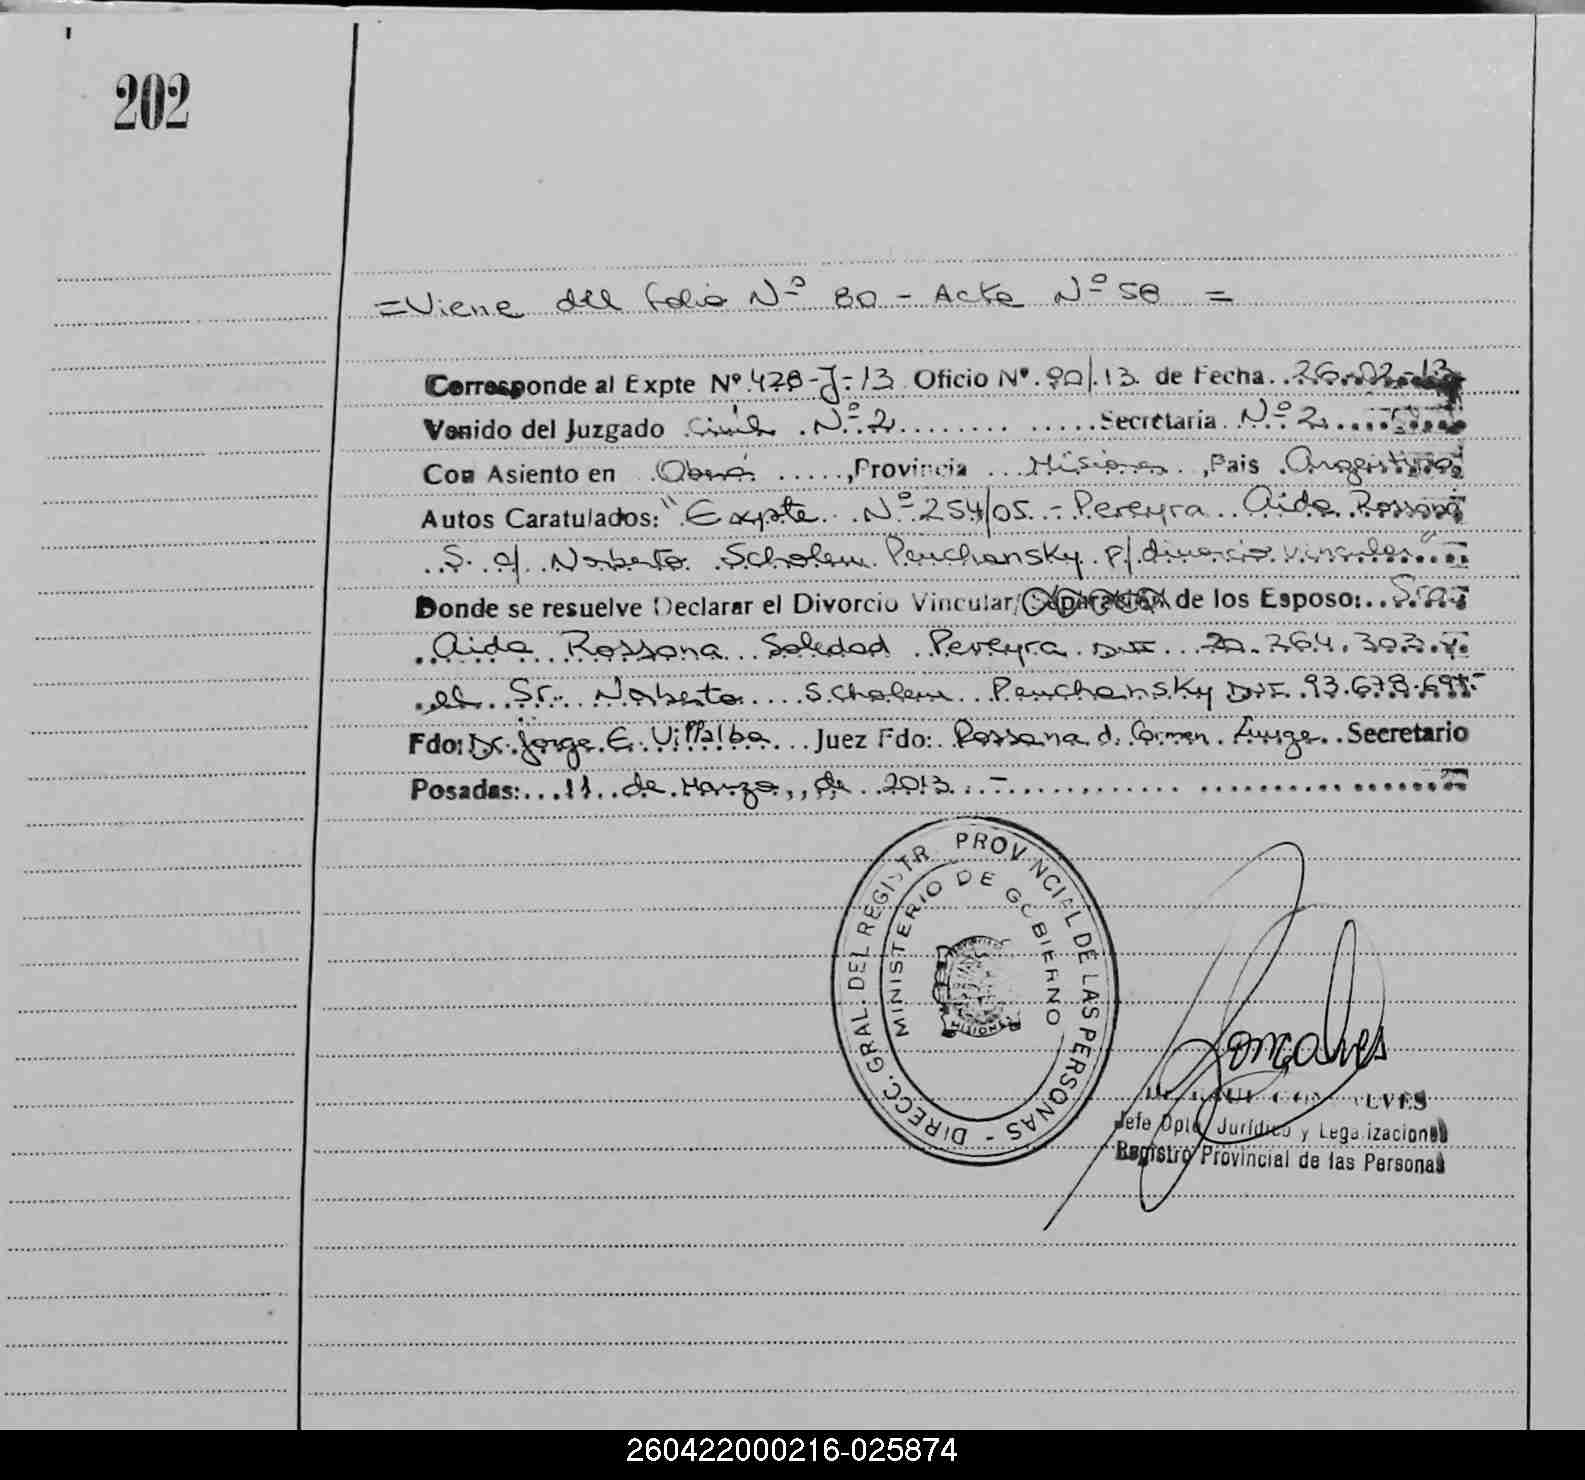 202
=Viene del Folio Nº 80 - Acta Nº 58 =
Corresponde al Expte Nº 428-J-13 Oficio Nº. 90/.13. de Fecha. 26-02-13
Venido del Juzgado Civil Nº 2 Secretaria Nº 2
Con Asiento en Oberá, Provincia Misiones, Pais Argentina
Autos Caratulados: "Expte Nº 254/05 - Pereyra Aida Rossana
S. c/ Norberto Scholem Penchansky p/ divorcio vincular"
Donde se resuelve Declarar el Divorcio Vincular/Separación de los Esposo: Sra
Aida Rossana Soledad Pereyra DNI 20.264.302 y
el Sr. Norberto Scholem Penchansky DNI 93.678.
Fdo: Dr. Jorge E. Villalba Juez Fdo: Rossana d. Carmen Secretario
Posadas: 11 de Marzo, de 2013.-
DIRECC. GRAL. DEL REGISTR PROVINCIAL DE LAS PERSONAS -
MINISTERIO DE GOBIERNO
MISIONES
Goncalves
Jefe Dpto. Jurídico y Legalizaciones
Registro Provincial de las Personas
260422000216-025874